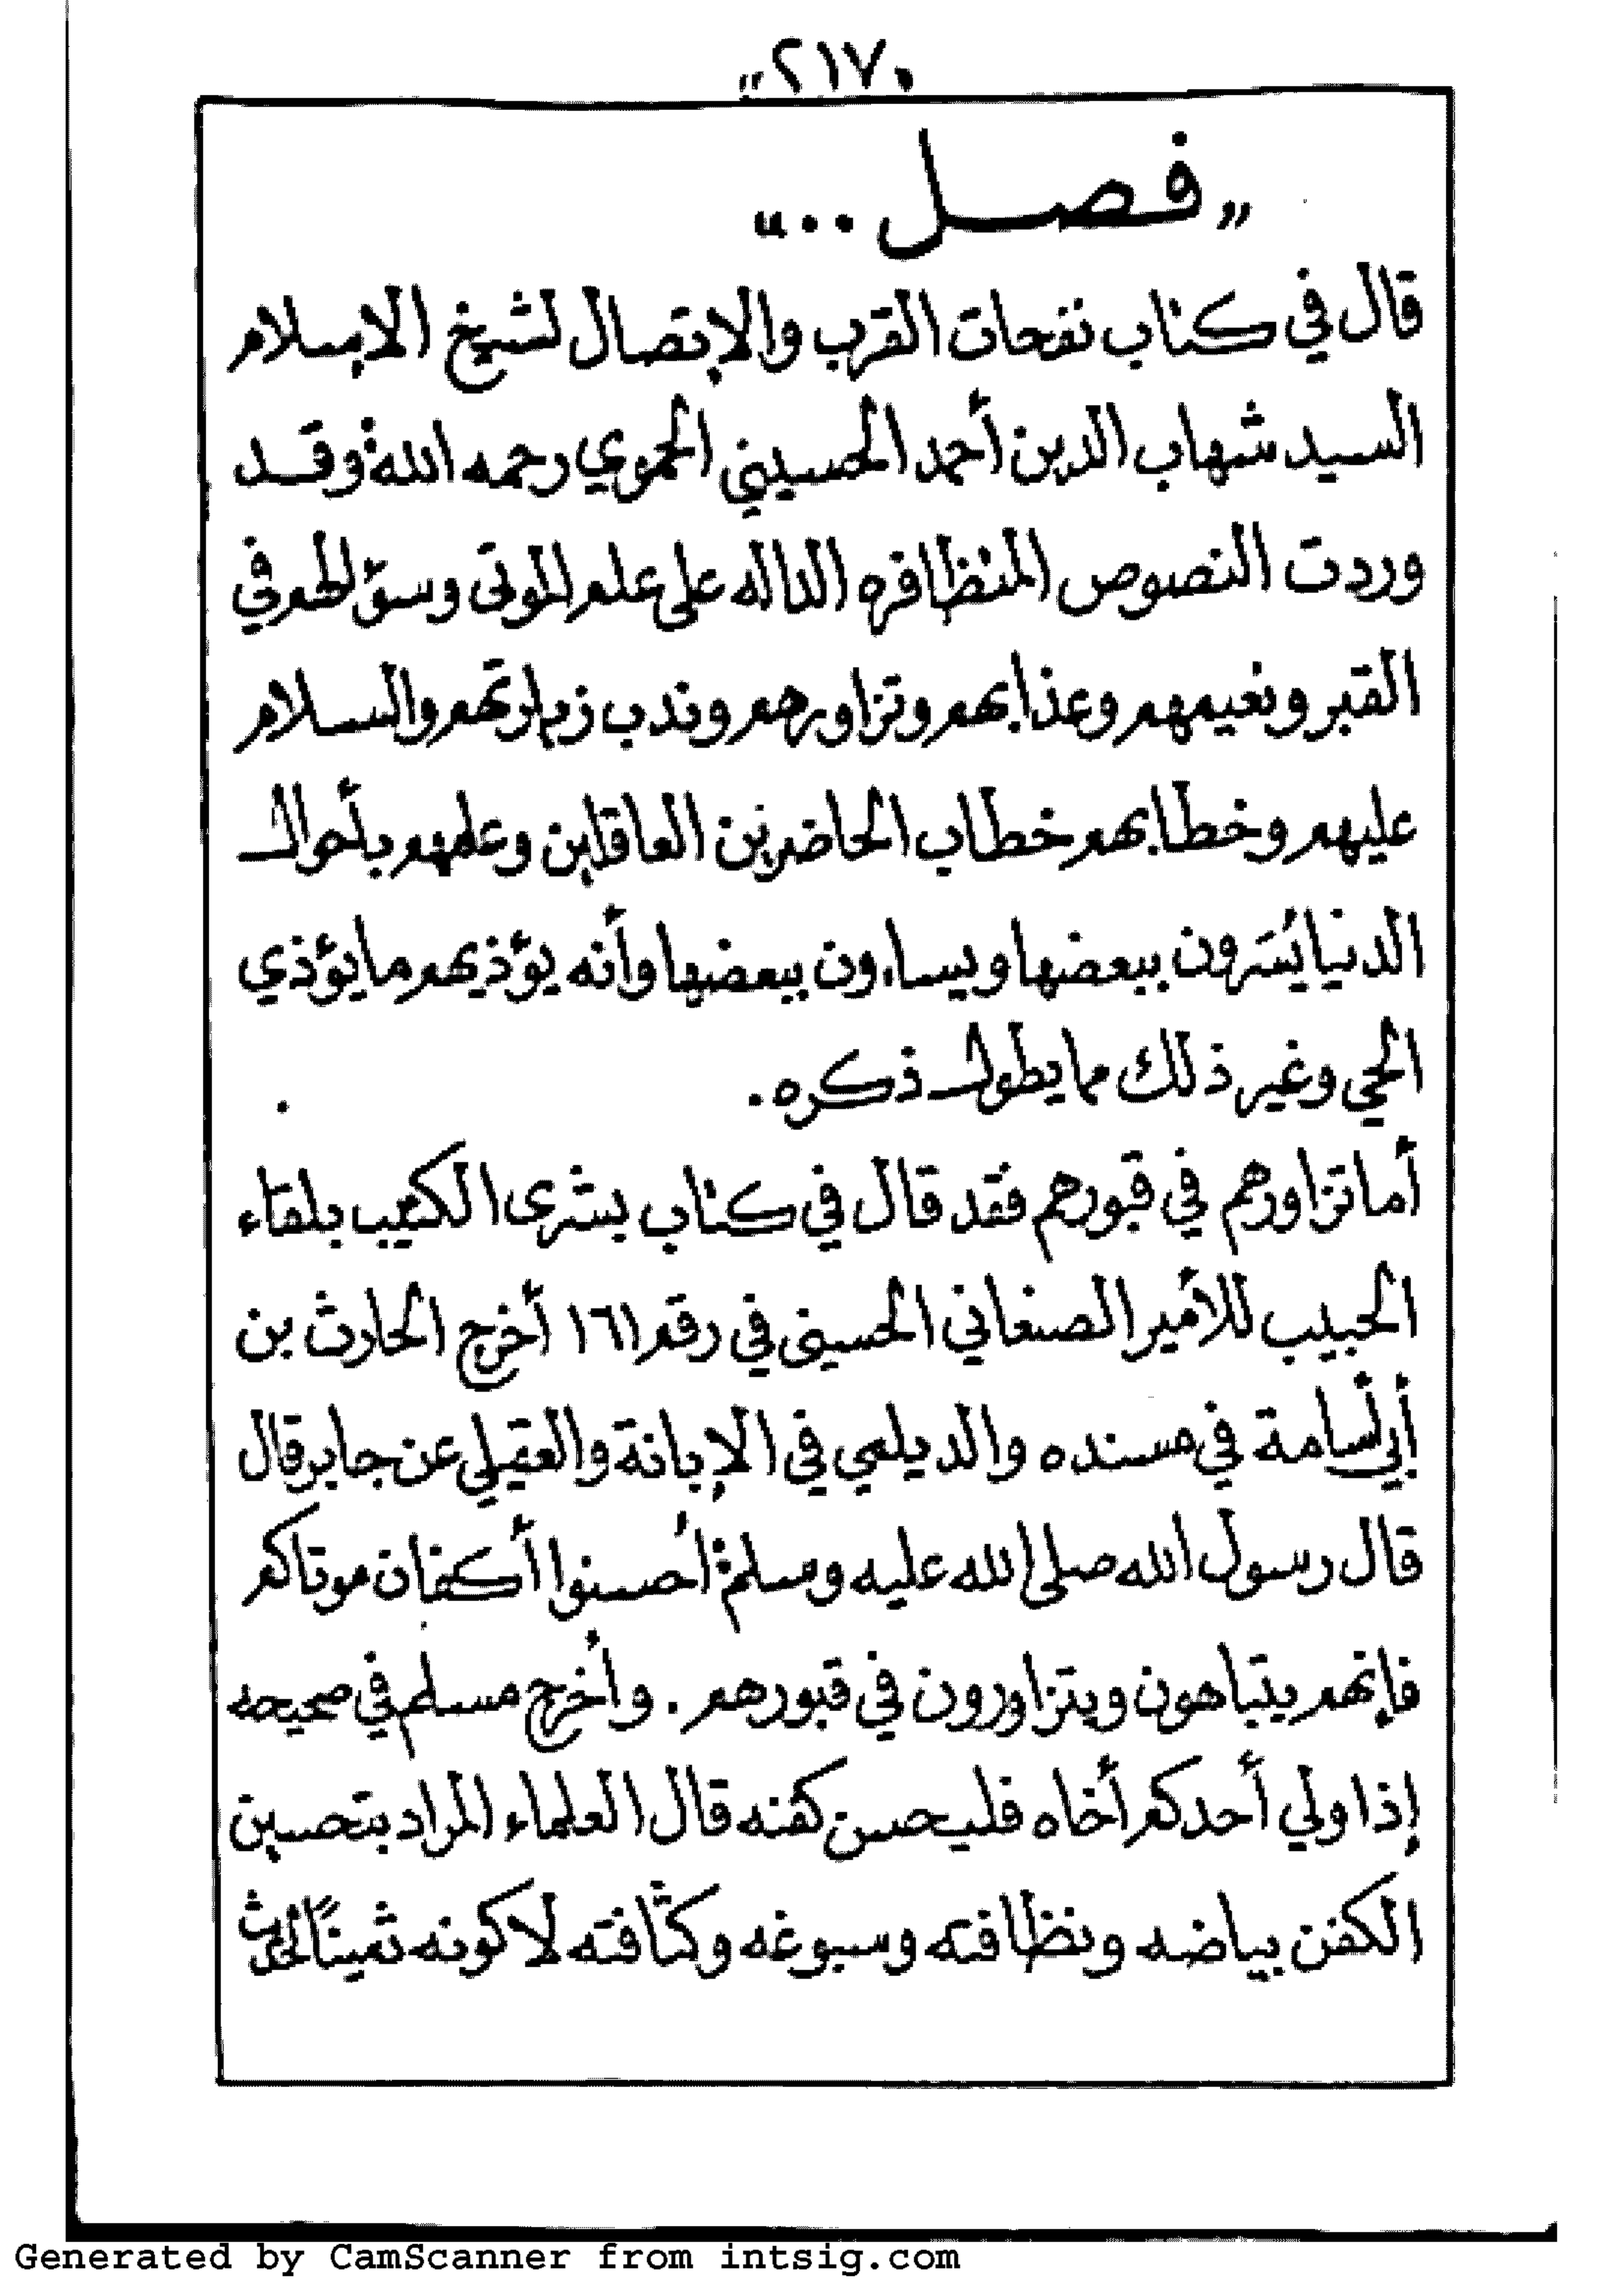 «٢١٧»
„فصل .."
قال في كتاب نفحات القرب والإتصال لشيخ الإسلام
السيد شهاب الدين أحمد الحسيني الحموي رحمه الله: وقد
وردت النصوص المتظافره الداله على علم الموتى وسؤالهم في
القبر ونعيمهم وعذابهم وتزاورهم وندب زيارتهم والسلام
عليهم وخطابهم خطاب الحاضرين العاقلين وعلمهم بأحوال
الدنيا يُسَرون ببعضها ويساءون ببعضها وأنه يؤذيهم ما يؤذي
الحي وغير ذلك مما يطول ذكره.
أما تزاورهم في قبورهم فقد قال في كتاب بشرى الكئيب بلقاء
الحبيب للأمير الصنعاني الحسيني في رقم ١٦١ أخرج الحارث بن
أبي أسامة في مسنده والديلمي في الإبانة والعقيلي عن جابر قال
قال رسول الله صلى الله عليه وسلم: أحسنوا أكفان موتاكم
فإنهم يتباهون ويتزاورون في قبورهم. وأخرج مسلم في صحيحه
إذا ولي أحدكم أخاه فليحسن كفنه قال العلماء المراد بتحسين
الكفن بياضه ونظافته وسبوغه وكثافته لا كونه ثمينًا لحديث
Generated by CamScanner from intsig.com